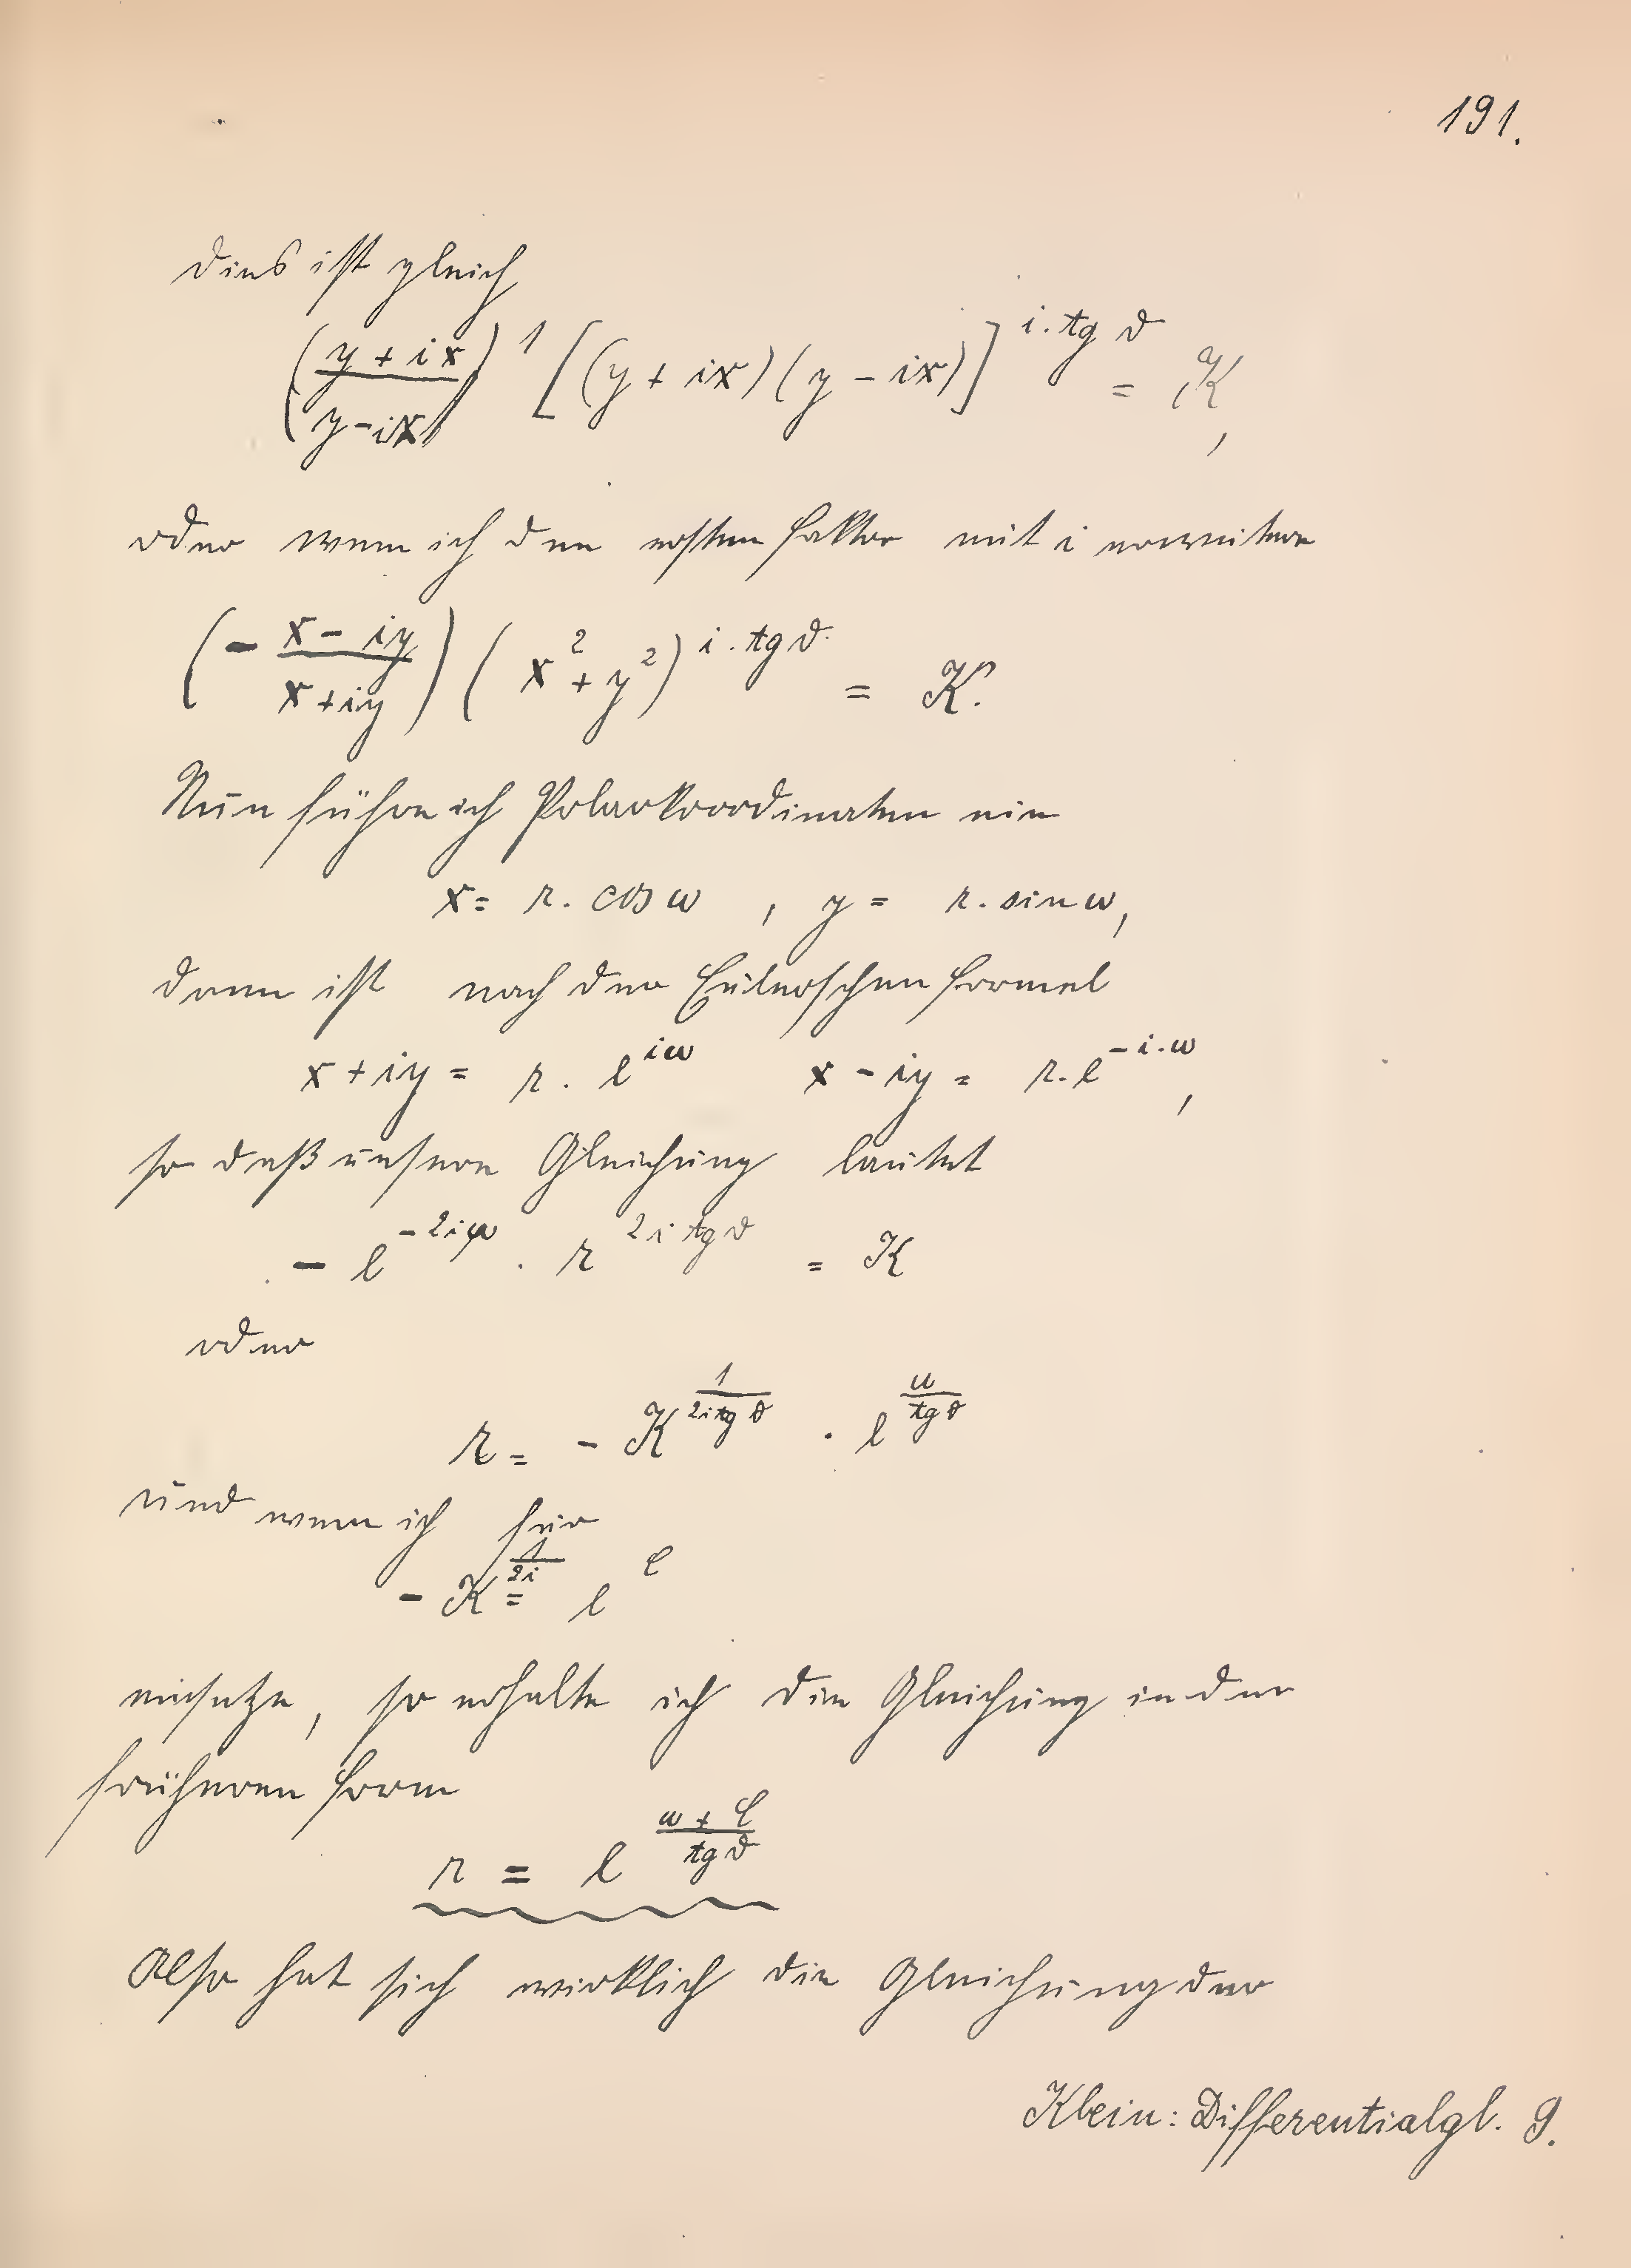 191.
dies ist gleich
((y + ix)/(y - ix))^1 [(y + ix)(y - ix)]^{i . tg ϑ} = K,
oder wenn ich den ersten Faktor mit i erweitere
(- (x - iy)/(x + iy)) (x² + y²)^{i . tg ϑ} = K.
Nun führe ich Polarkoordinaten ein
x = r . cos ω , y = r . sin ω,
dann ist nach der Eulerschen Formel
x + iy = r . e^{iω} x - iy = r . e^{-i.ω},
so daß unsere Gleichung lautet
- e^{-2iω} . r^{2i tg ϑ} = K
oder
r = - K^{1/(2i tg ϑ)} . e^{ω/(tg ϑ)}
und wenn ich für
- K^{1/(2i)} = e^C
einsetze, so erhalte ich die Gleichung in der
früheren Form
r = e^{(ω + C)/(tg ϑ)}
Also hat sich wirklich die Gleichung der
Klein: Differentialgl. 9.